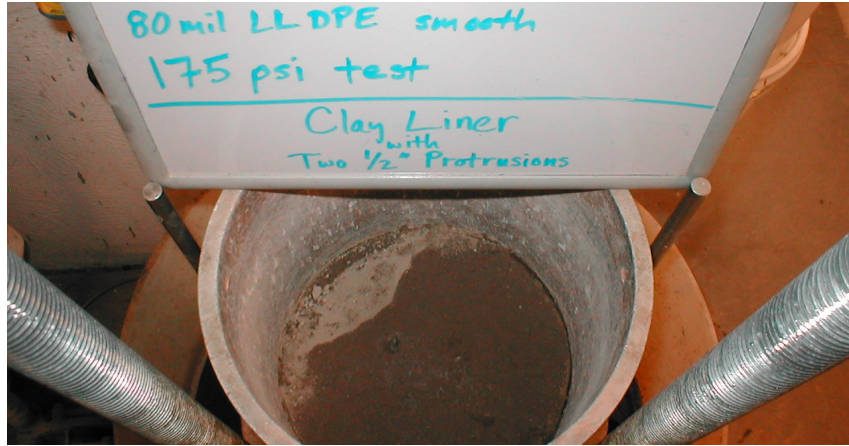 80 mil LLDPE smooth
175 psi test
Clay Liner
with
Two 1/2" Protrusions